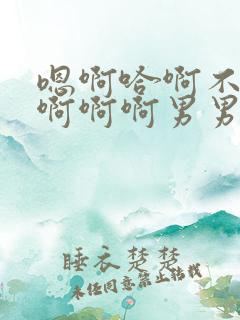 嗯啊哈啊不
啊啊啊男男
睡衣楚楚
未经同意禁止转载